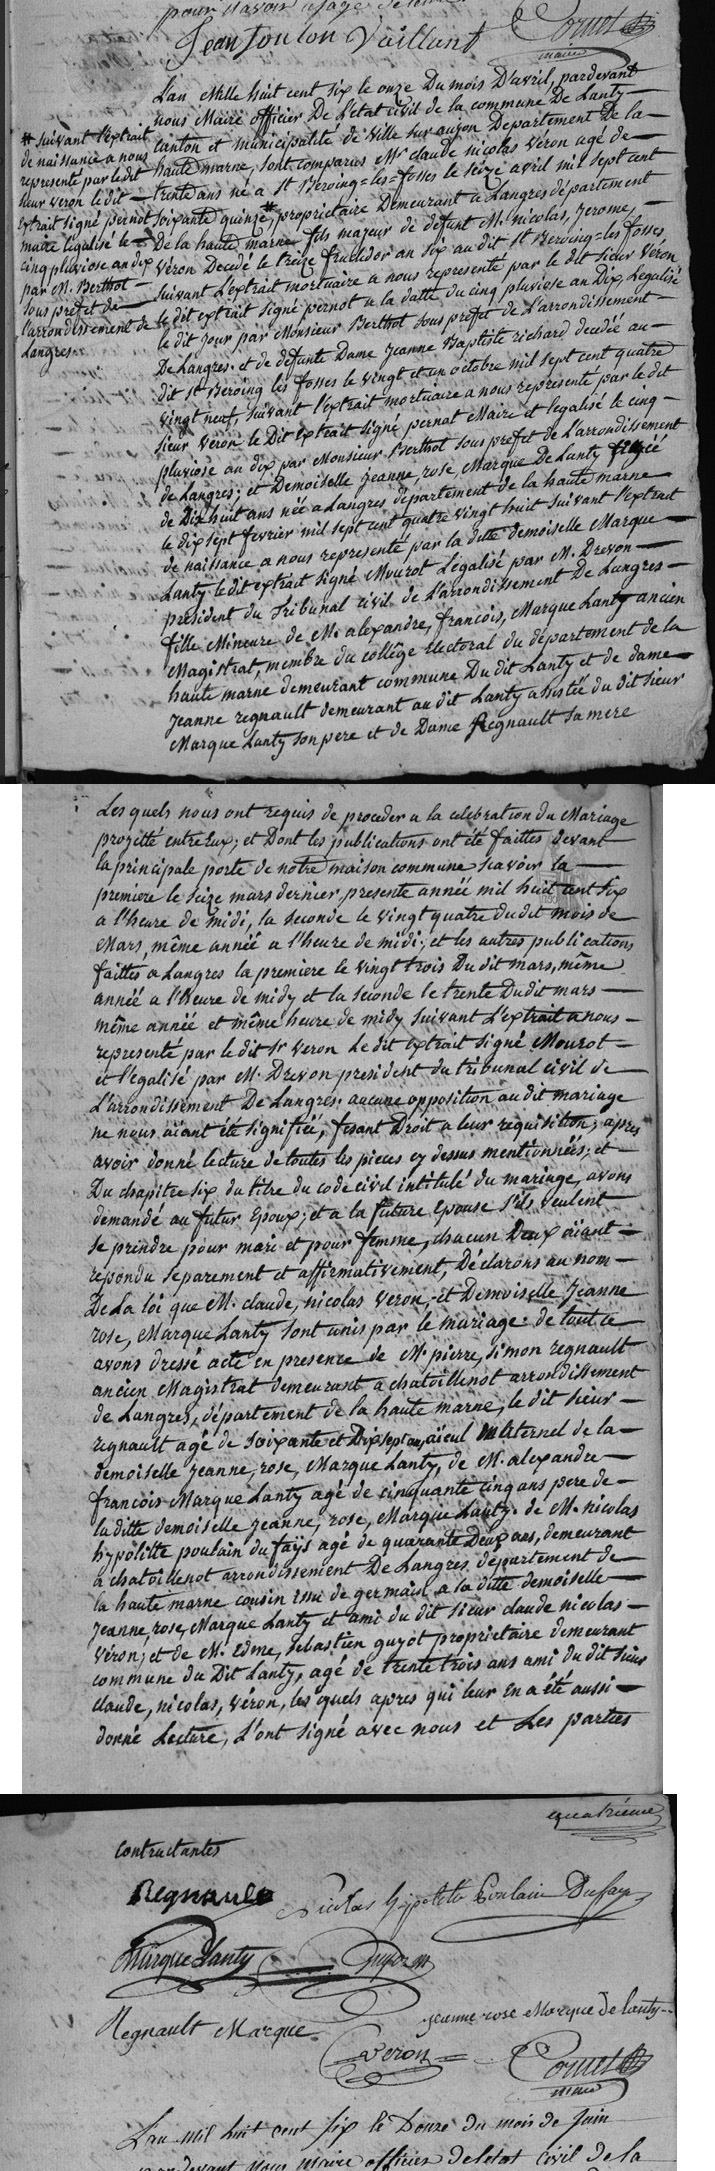 pour l'avoir
Jean toulon Vaillant Cornet
maire
L'an Mille huit cent six le onze Du mois D'avril, pardevant
nous Maire officier De L'etat civil de la commune De Lanty
canton et municipalité de Ville sur aujon Departement De la
haute marne, sont comparus Mr claude nicolas veron agé de
trente ans né a St Beroing=les=fosses le seize avril mil sept cent
soixante quinze #, proprietaire Demeurant a Langres département
De la haute marne fils majeur de défunt M. nicolas, Jerome,
Véron Decedé le treize fructidor an six au dit St Beroing=les fosses
suivant L'extrait mortuaire a nous representé par le dit Sieur Véron
le dit extrait signé pernot a la datte du cinq pluviose an Dix, Legalisé
le dit jour par Monsieur Berthot sous prefet de L'arrondissement
De Langres. et de défunte Dame Jeanne Baptiste richard decedée au
dit St Beroing les fosses le vingt et un octobre mil sept cent quatre
vingt neuf, suivant l'extrait mortuaire a nous representé par le dit
sieur Veron le Dit extrait signé pernot Maire et legalisé le cinq
pluviose an dix par Monsieur Berthot sous prefet de L'arrondissement
de Langres; et Demoiselle Jeanne, rose, Marque De Lanty agée
de Dix huit ans née a Langres département de la haute marne
le dix sept fevrier mil sept cent quatre vingt huit suivant l'extrait
de naissance a nous representé par la ditte demoiselle Marque
Lanty ledit extrait signé Mourot Légalisé par M. Drevon
president du Tribunal civil de L'arrondissement De Langres
fille Mineure de M. alexandre, francois, Marque Lanty ancien
Magistrat, membre du collége Electoral du département de la
haute marne demeurant commune Du dit Lanty et de dame
Jeanne regnault demeurant au dit Lanty assistée du dit sieur
Marque Lanty son pere et de Dame Regnault sa mere
# suivant l'extrait
de naissance a nous
representé par le dit
sieur veron le dit
extrait signé pernot
maire legalisé le
cinq pluviose an dix
par M. Berthot
sous prefet de
l'arrondissement de
Langres
Les quels nous ont requis de proceder a la celebration du Mariage
projetté entre Eux; et Dont les publications ont été faittes devant
la principale porte de notre maison commune scavoir la
premiere le seize mars dernier presente année mil huit cent six
a l'heure de midi, la seconde le vingt quatre du dit mois de
Mars, même année a l'heure de midi; et les autres publications
faittes a Langres la premiere le vingt trois Du dit mars, même
année a l'heure de midy et la seconde le trente Du dit mars
même année et même heure de midy suivant L'extrait a nous
representé par le dit Sr Veron Le dit extrait signé Mourot
et l'égalisé par M. Drevon president du tribunal civil de
L'arrondissement De Langres. aucune opposition au dit mariage
ne nous aïant été signifiée, fesant Droit a leur requisition; apres
avoir donné lecture de toutes les pieces cy dessus mentionnées; et
Du chapitre six du titre du code civil intitulé du mariage, avons
demandé au futur Epoux; et a la future Epouse s'ils veulent
se prendre pour mari et pour femme, chacun Deux aïant
repondu separement et affirmativement, Déclarons au nom
De La loi que M. claude, nicolas veron, et Demoiselle Jeanne
rose, Marque Lanty sont unis par le mariage. de tout ce
avons dressé acte en presence de M. pierre, simon regnault
ancien Magistrat demeurant a chatoillenot arrondissement
de Langres, département de la haute marne, le dit sieur
regnault agé de soixante et Dix sept ans, aïeul Maternel de la
demoiselle jeanne, rose, Marque Lanty, de M. alexandre
francois Marque Lanty agé de cinquante cinq ans pere de
la ditte demoiselle jeanne, rose, Marque Lanty. de M. nicolas
hypolitte poulain du faÿs agé de quarante Deux ans, demeurant
a chatoillenot arrondissement De Langres département de
la haute marne cousin issu de germain a la ditte demoiselle
Jeanne, rose, Marque Lanty et ami du dit sieur claude nicolas
Veron; et de M. Edme, sebastien guyot proprietaire demeurant
commune du Dit Lanty, agé de trente trois ans ami du dit sieur
claude, nicolas, véron, les quels apres qui leur En a été aussi
donné Lecture, L'ont signé avec nous et Les parties
quatrième
Contractantes
Regnault Nicolas hypolitte Poulain Dufay
Marque Lanty Guyot
Regnault Marque jeanne rose Marque de lanty
Veron Cornet
maire
L'an mil huit cent six le Douze du mois de Juin
pardevant nous maire officier de letat civil de la